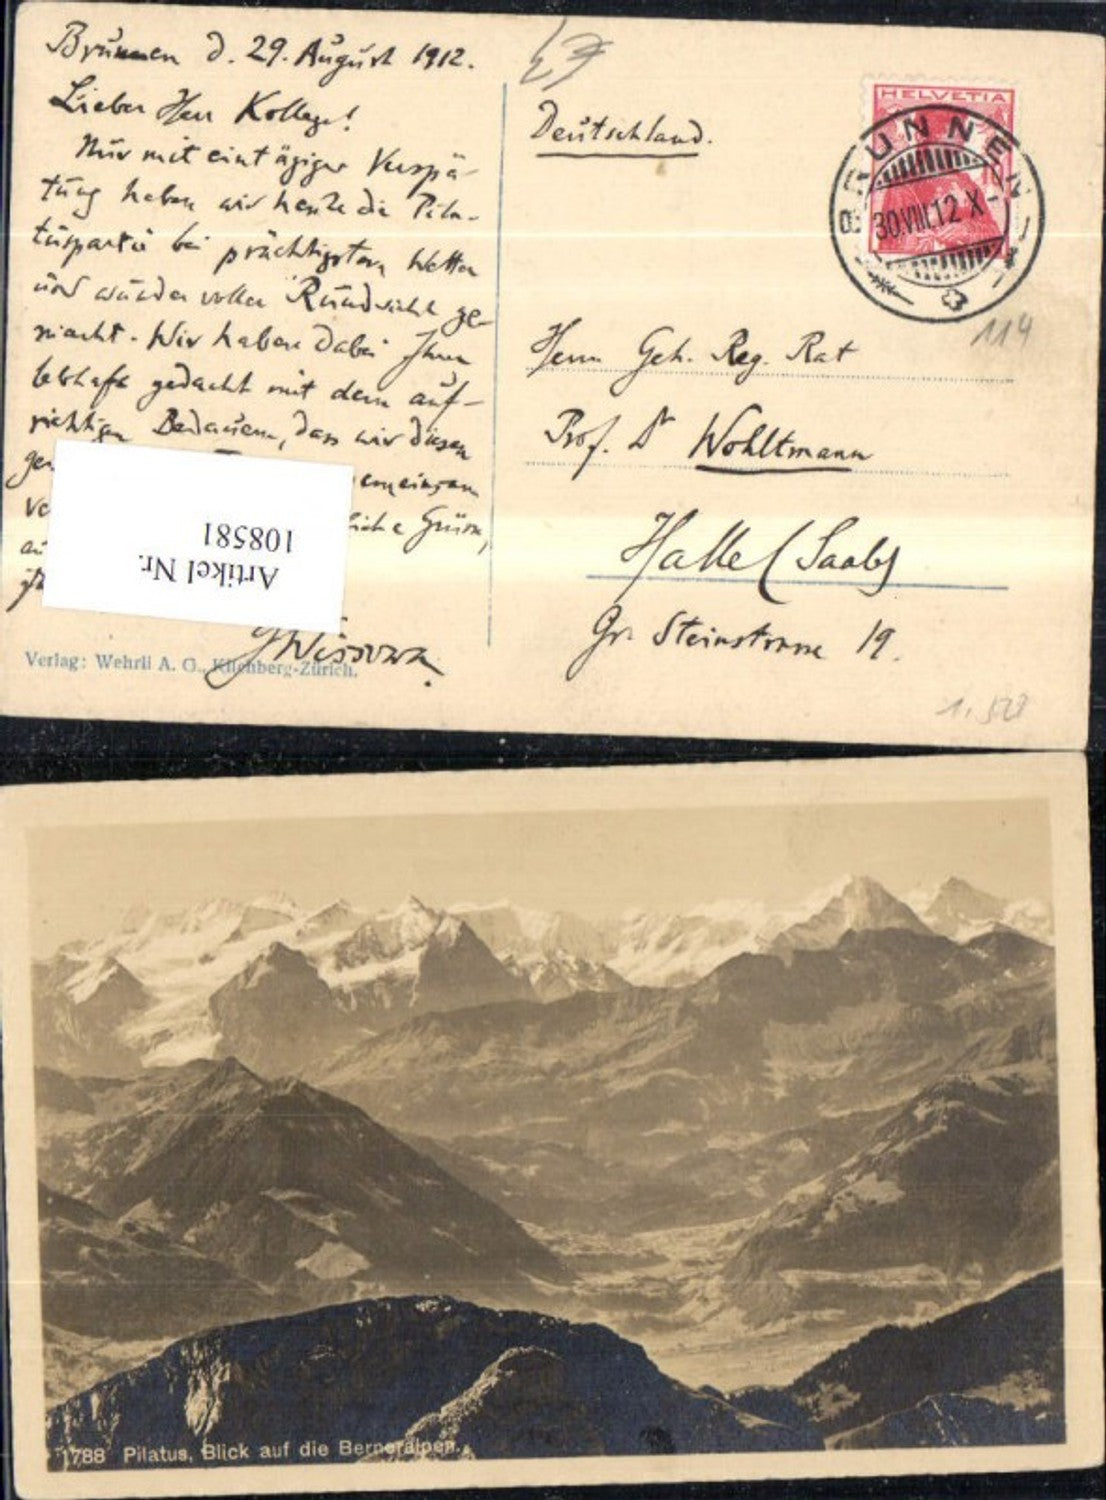 Brunnen d. 29. August 1912.
Lieber Herr Kollege!
Nur mit eintägiger Verspä-
tung haben wir heute die Pila-
tuspartie bei prächtigstem Wetter
und wundervoller Rundsicht ge-
macht. Wir haben dabei Ihrer
lebhaft gedacht mit dem auf-
richtigen Bedauern, dass wir diesen
gemeinsam
Grüsse,
GWissowa.
Artikel Nr.
108581
Verlag: Wehrli A. G., Kilchberg-Zürich.
Deutschland.
HELVETIA
BRUNNEN
30.VIII.12 X
114
Herrn Geh. Reg. Rat
Prof. Dr Wohltmann
Halle (Saale)
Gr. Steinstrasse 19.
1788 Pilatus, Blick auf die Berneralpen.